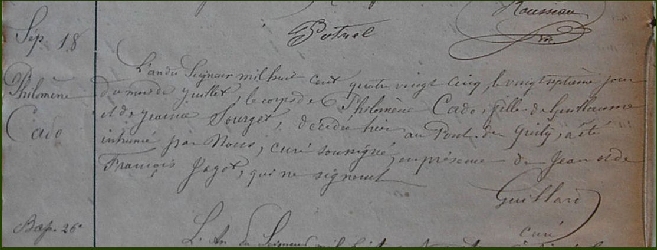 Rousseau
Sep. 18
Potrel
L'an du Seigneur mil huit cent quatre vingt cinq, le vingt septième jour
Philomène
Cadé
du mois de juillet, le corps de Philomène Cadé, fille de Guillaume
et de Jeanne Sourget, décédée hier au Pont de, a été
inhumé par Nous, curé soussigné, en présence de Jean et de
François Jagot, qui ne signent
Guillard
curé
Bap. 26e
L'An du Seigneur mil huit